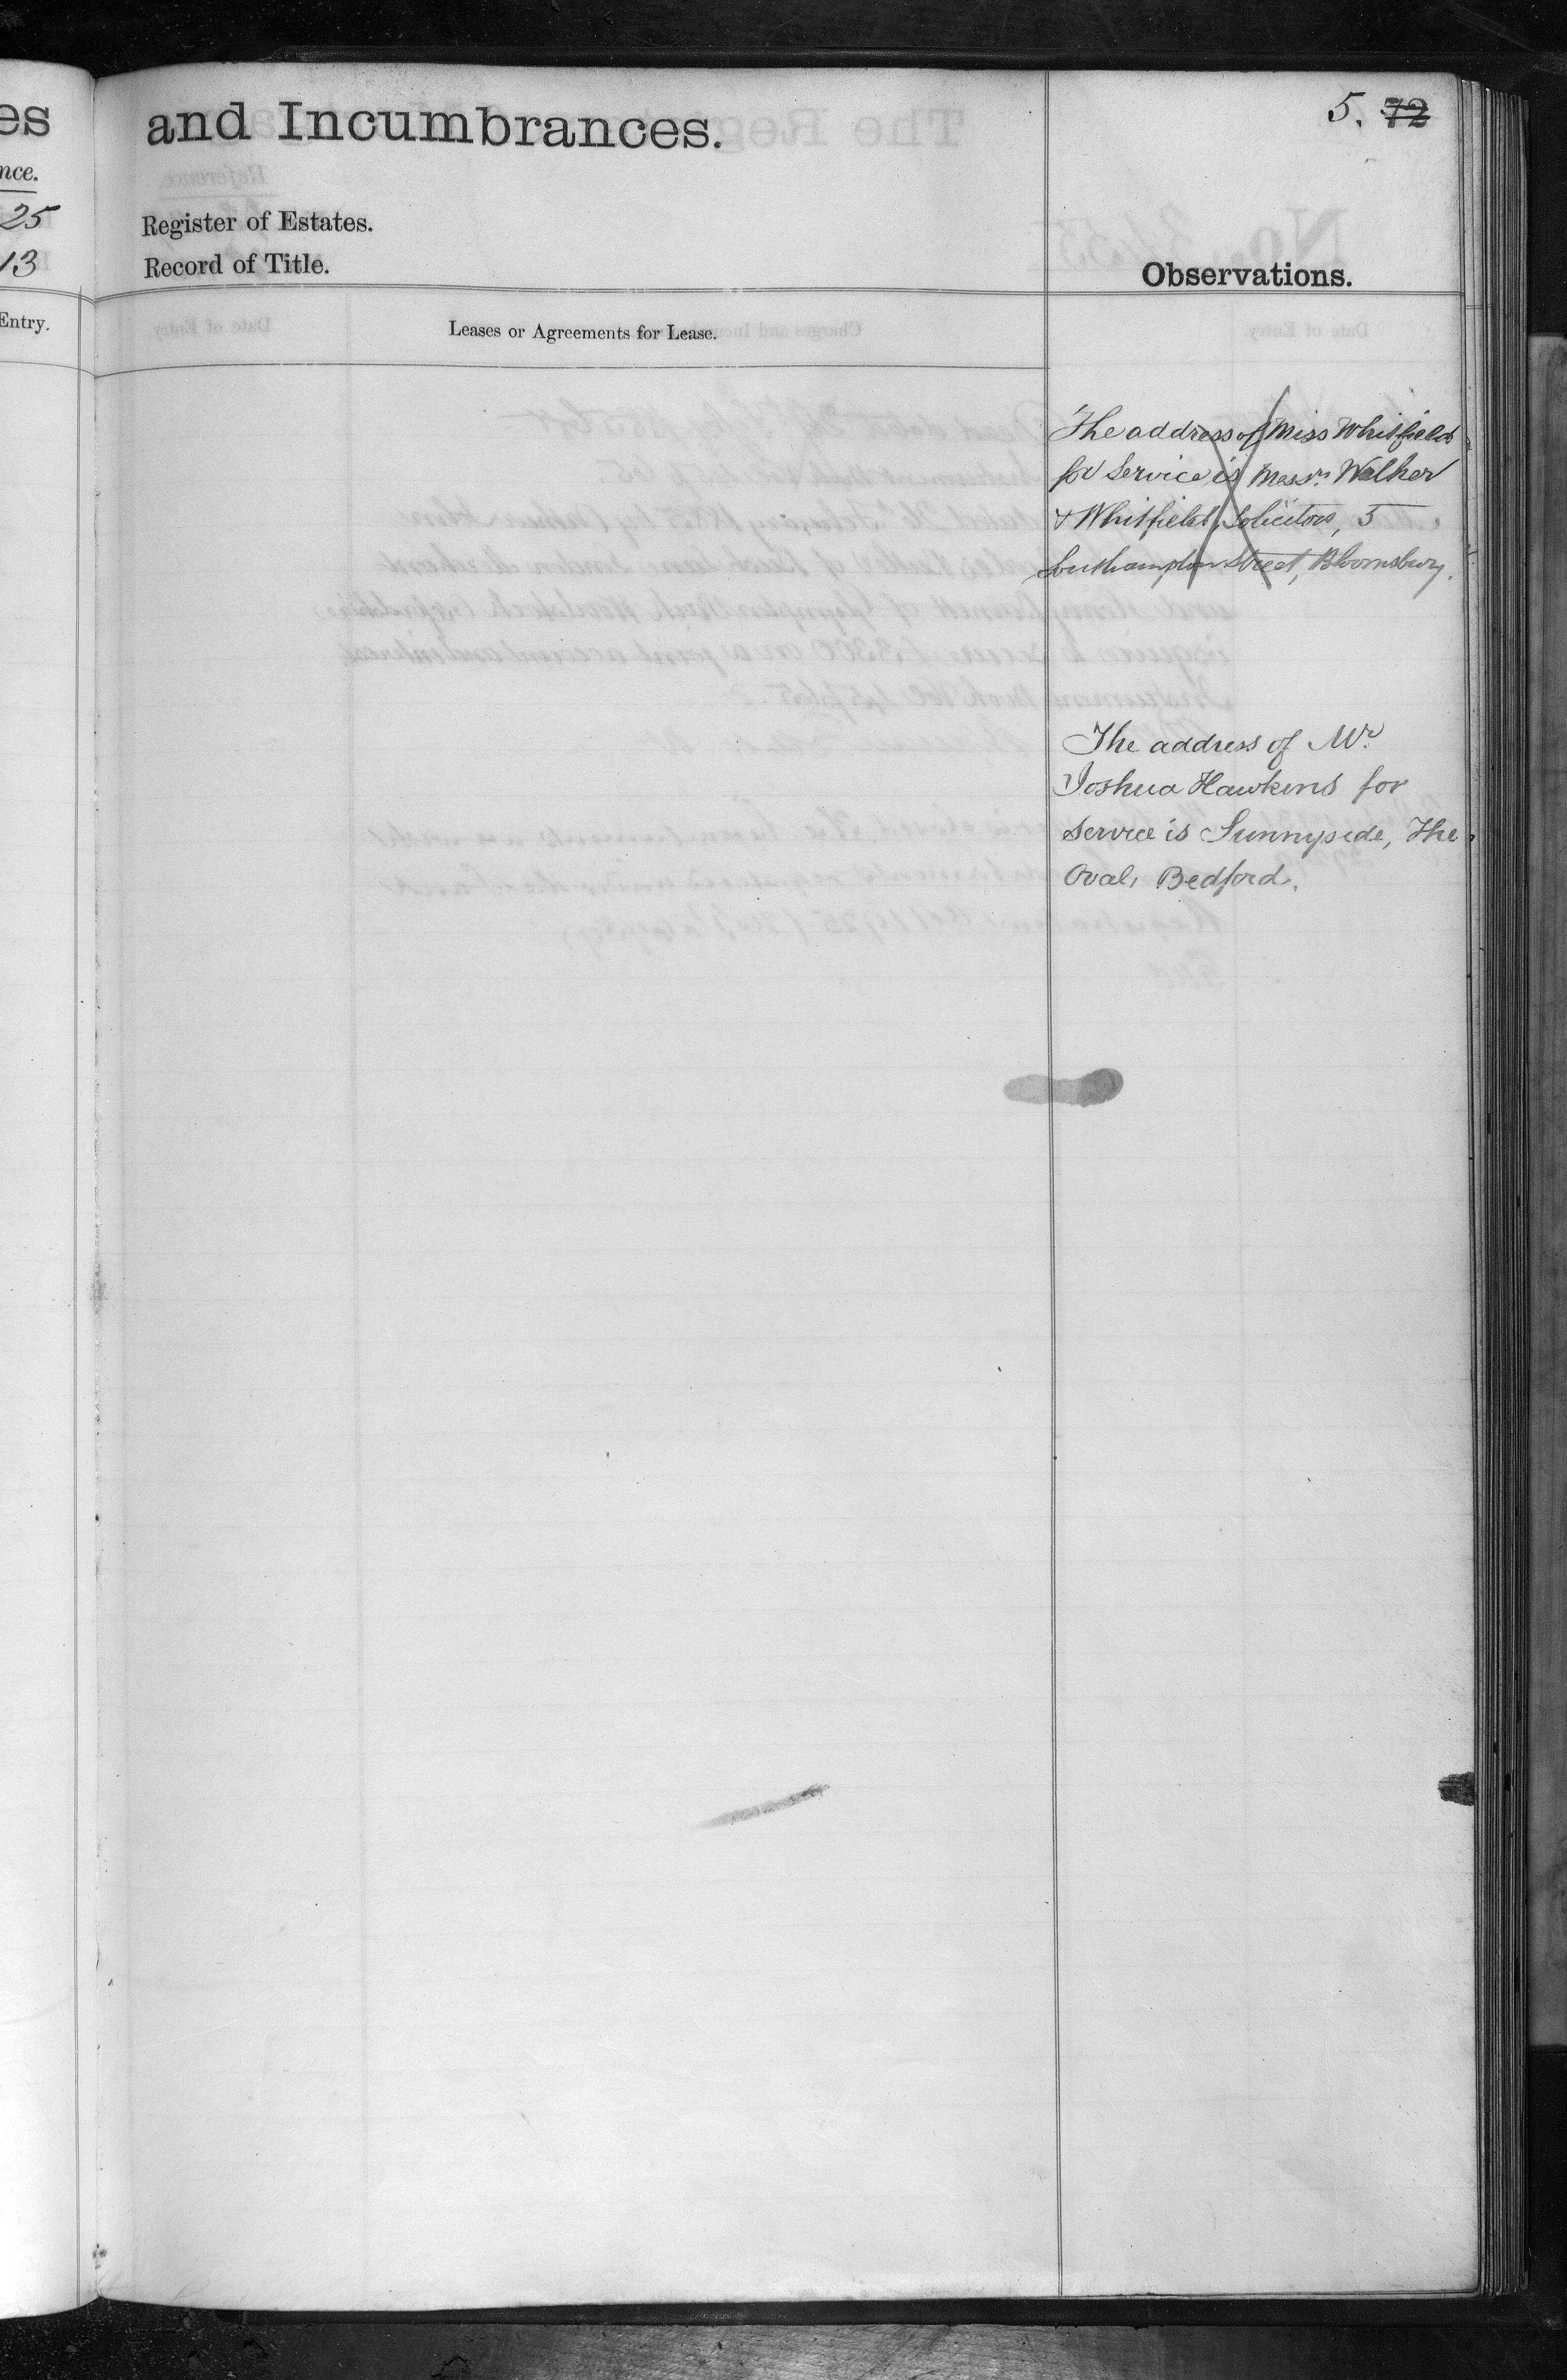 es
nce.
25
13
Entry.
and Incumbrances.
5. 72
Register of Estates.
Record of Title.
Observations.
Leases or Agreements for Lease.
The address of Miss Whitfield
for Service is Messrs Walker
& Whitfield, Solicitors, 5
Southampton Street, Bloomsbury.
The address of Mr.
Joshua Hawkins for
service is Sunnyside, The
Oval, Bedford.